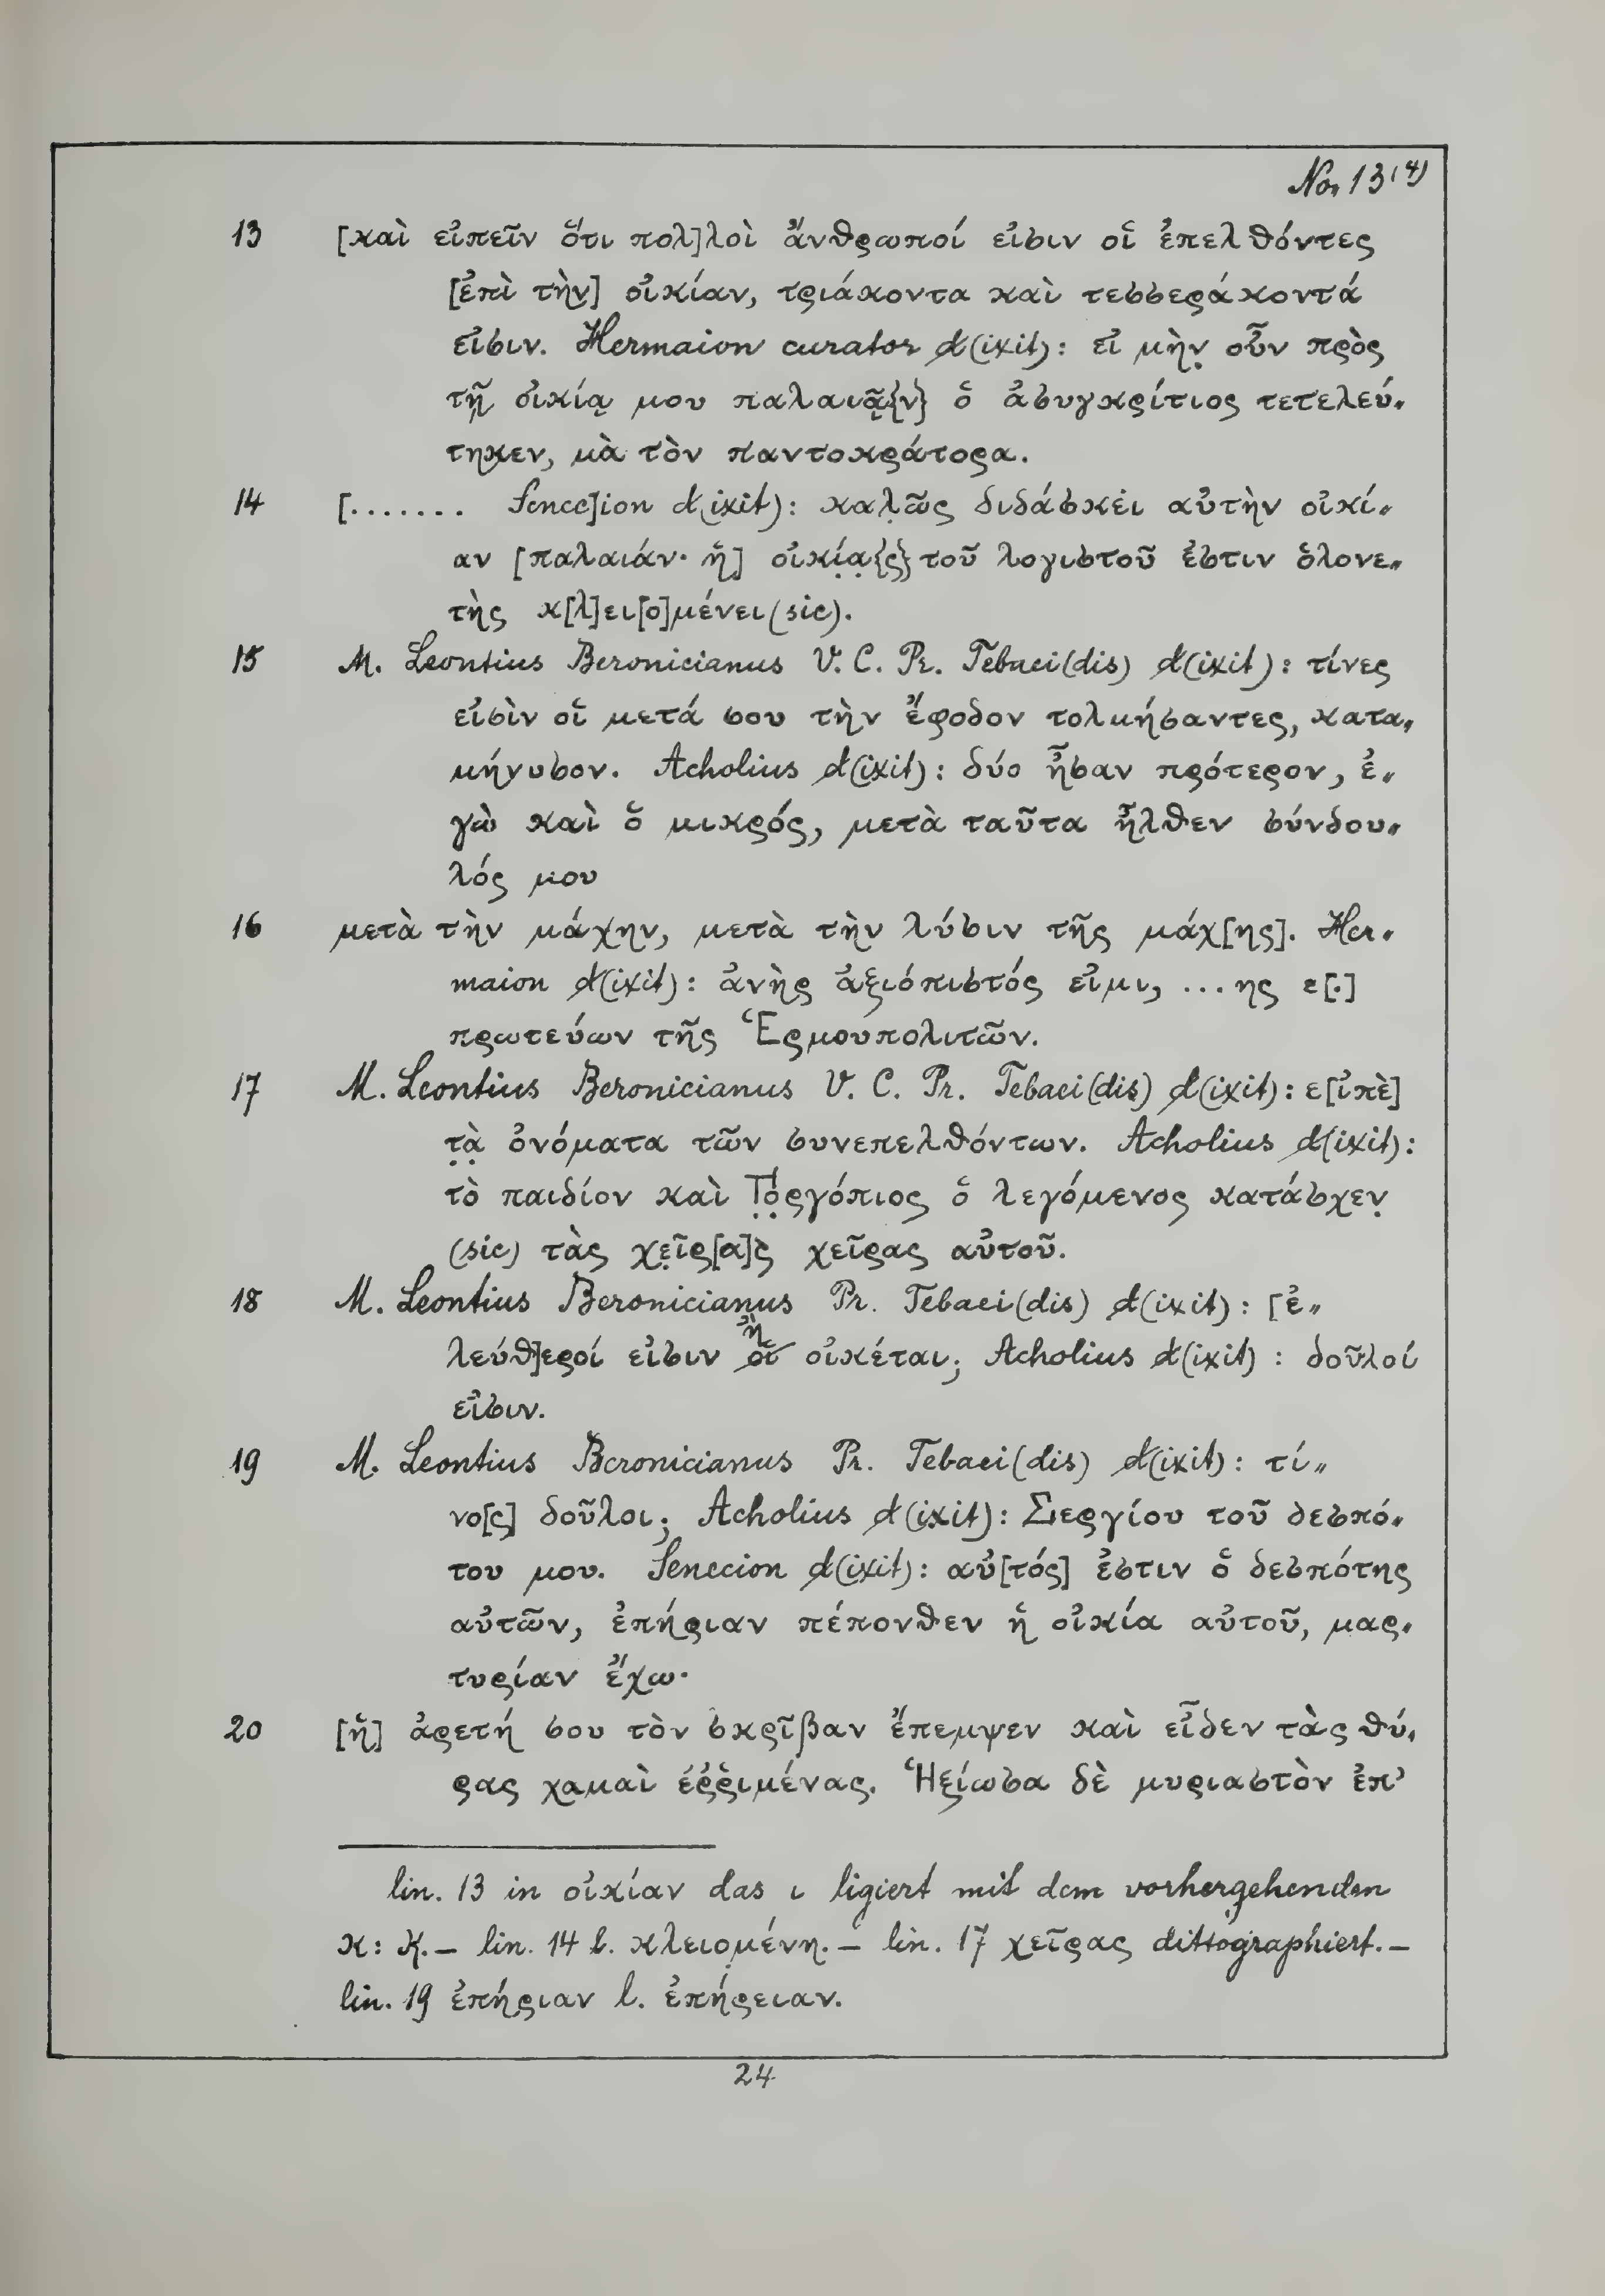 No. 13(4)
13 [καὶ εἰπεῖν ὅτι πολ]λοὶ ἄνθρωποί εἰσιν οἱ ἐπελθόντες
[ἐπὶ τὴν] οἰκίαν, τριάκοντα καὶ τεσσεράκοντά
εἰσιν. Hermaion curator d(ixit): εἰ μὴν̣ οὖν πρὸς
τῇ οἰκίᾳ μου παλαιᾷ̣{ν} ὁ ἀσυγκρίτιος τετελεύ-
τηκεν, μὰ τὸν παντοκράτορα.
14 [....... Senec]ion d(ixit): καλ̣ῶς διδάσκει αὐτὴν οἰκί-
αν [παλαιάν· ἡ] οἰκί̣α̣{ς} τοῦ λογιστοῦ ἐστιν ὁλονε-
τὴς κ[λ]ει[ο]μένει (sic).
15 M. Leontius Beronicianus V. C. Pr. Tebaei(dis) d(ixit): τίνες
εἰσὶν οἱ μετά σου τὴν ἔφοδον τολμήσαντες, κατα-
μήνυσον. Acholius d(ixit): δύο ἦσαν πρότερον, ἐ-
γὼ καὶ ὁ μικρός, μετὰ ταῦτα ἦλθεν σύνδου-
λός μου
16 μετὰ τὴν μάχην, μετὰ τὴν λύσιν τῆς μάχ[ης]. Her-
maion d(ixit): ἀνὴρ ἀξιόπιστός εἰμι, ...ης ε[.]
πρωτεύων τῆς Ἑρμουπολιτῶν.
17 M. Leontius Beronicianus V. C. Pr. Tebaei(dis) d(ixit): ε[ἰπὲ]
τ̣ὰ̣ ὀνόματα τῶν συνεπελθόντων. Acholius d(ixit):
τὸ παιδίον καὶ Γ̣ό̣ργόπιος ὁ λεγόμενος κατάσχεν̣
(sic) τὰς χε̣ῖρ[α]ς̣ χεῖρας αὐτοῦ.
18 M. Leontius Beronicianus Pr. Tebaei(dis) d(ixit): [ἐ-
λεύθ]εροί εἰσιν ἢ οἰκέται; Acholius d(ixit): δοῦλοί
εἰσιν.
19 M. Leontius Beronicianus Pr. Tebaei(dis) d(ixit): τί-
νο[ς] δοῦλοι; Acholius d(ixit): Σεργίου τοῦ δεσπό-
του μου. Senecion d(ixit): αὐ[τός] ἐστιν ὁ δεσπότης
αὐτῶν, ἐπήριαν πέπονθεν ἡ οἰκία αὐτοῦ, μαρ-
τυρίαν ἔχω·
20 [ἡ] ἀρετή σου τὸν σκρῖβαν ἔπεμψεν καὶ εἶδεν τὰς θύ-
ρας χαμαὶ ἐῤῥιμένας. Ἠξίωσα δὲ μυριαστὸν ἐπ’
lin. 13 in οἰκίαν das ι ligiert mit dem vorhergehenden
κ: Ϗ. – lin. 14 l. κλειομένη. – lin. 17 χεῖρας dittographiert. –
lin. 19 ἐπήριαν l. ἐπήρειαν.
24